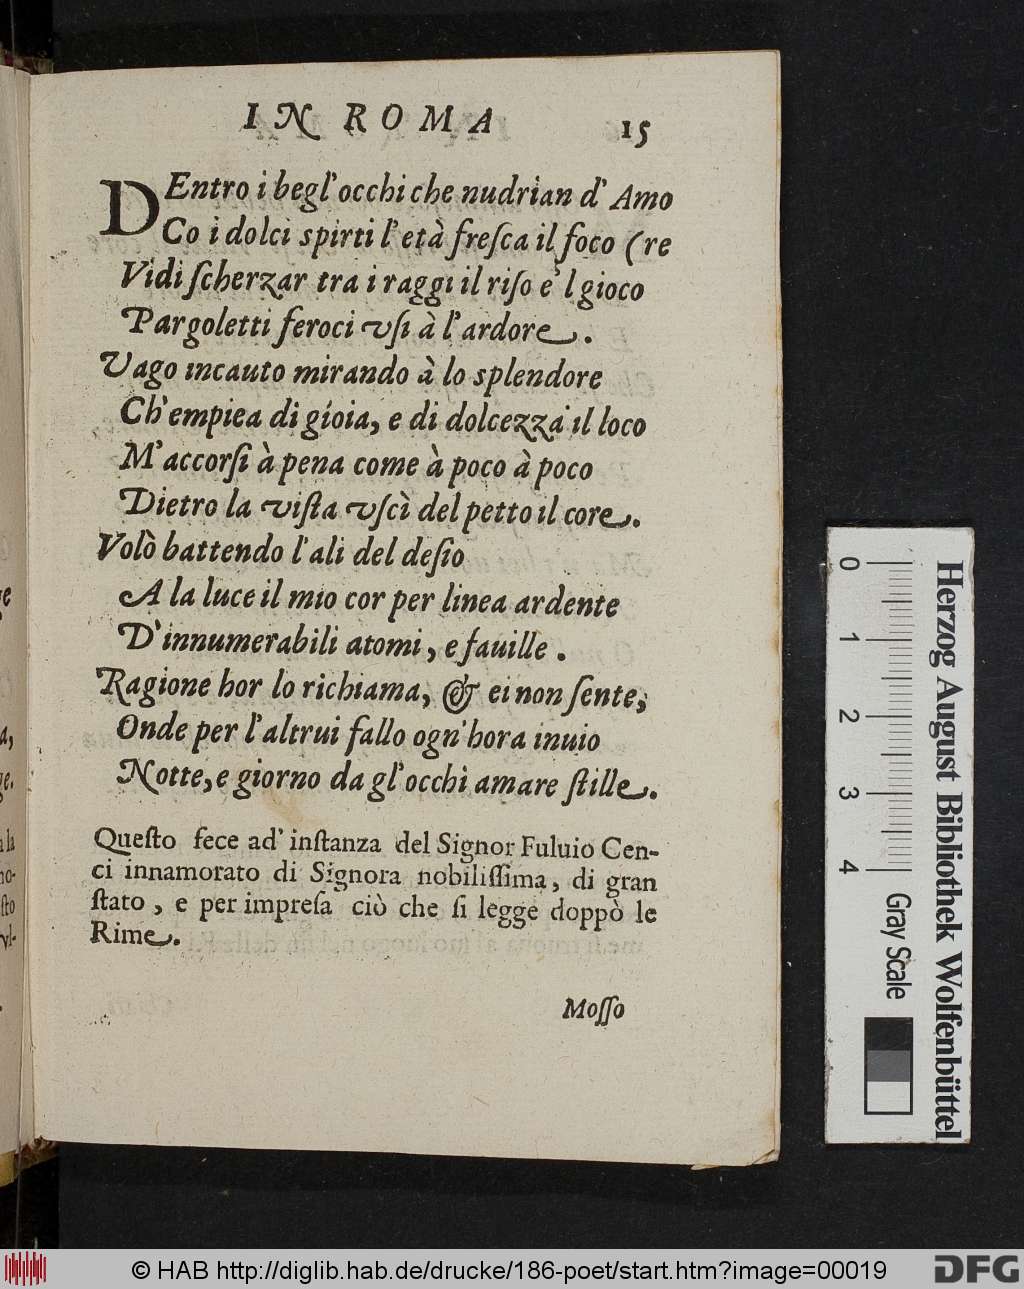 IN ROMA 15
DEntro i begl'occhi che nudrian d'Amo
Co i dolci spirti l'età freſca il foco (re
Vidi ſcherzar tra i raggi il riſo e'l gioco
Pargoletti feroci vſi à l'ardore.
Vago incauto mirando à lo splendore
Ch'empiea di gioia, e di dolcezza il loco
M'accorſi à pena come à poco à poco
Dietro la viſta vſcì del petto il core.
Volò battendo l'ali del deſio
A la luce il mio cor per linea ardente
D'innumerabili atomi, e fauille.
Ragione hor lo richiama, & ei non ſente;
Onde per l'altrui fallo ogn'hora inuio
Notte, e giorno da gl'occhi amare ſtille.
Queſto fece ad' inſtanza del Signor Fuluio Cen-
ci innamorato di Signora nobiliſſima, di gran
ſtato, e per impreſa ciò che ſi legge doppò le
Rime.
Moſſo
0 1 2 3 4 Gray Scale
Herzog August Bibliothek Wolfenbüttel
© HAB http://diglib.hab.de/drucke/186-poet/start.htm?image=00019
DFG